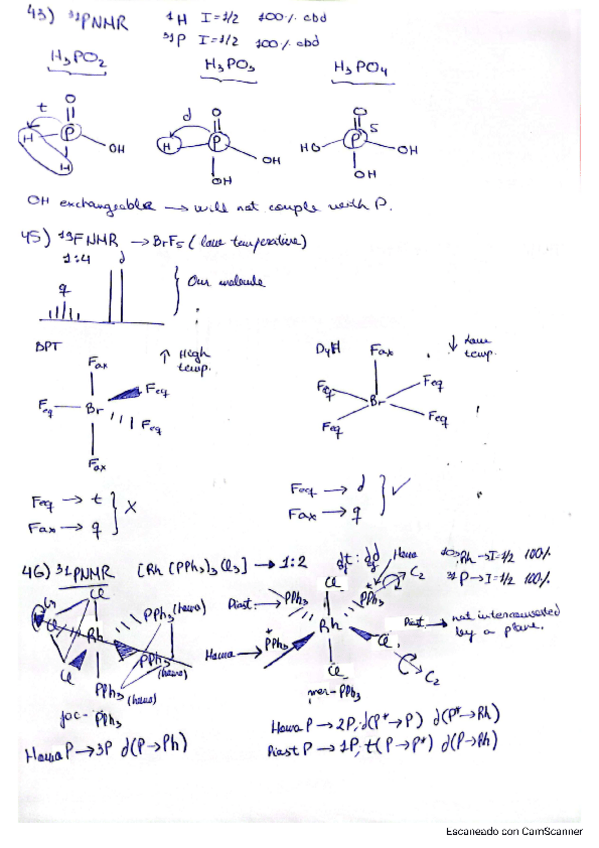 43) ³¹PNMR
¹H I=1/2 100% abd
³¹P I=1/2 100% abd
H₃PO₂ H₃PO₃ H₃PO₄
t d s
O O O
H P OH
H
H P OH
OH
HO P OH
OH
OH exchangeable → will not couple with P.
45) ¹⁹FNMR → BrF₅ (low temperature)
1:4 d
q
Our molecule
BPT ↑ High temp.
Fax
Feq Br Feq
Feq
Fax
DyH ↓ Low temp.
Fax
Feq Feq
Br
Feq Feq
Feq → t
Fax → q
} X
Feq → d
Fax → q
} ✓
46) ³¹PNMR [Rh(PPh₃)₃Cl₃] → 1:2 dt : dd
¹⁰³Rh → I=1/2 100%
³¹P → I=1/2 100%
C₃ Cl PPh₃ (homo)
Cl Rh PPh₃ (homo)
Cl PPh₃ (homo)
fac-PPh₃
Cl Homo C₂
Diast → PPh₃ PPh₃*
Rh
Homo → PPh₃* Cl C₂
Cl
mer-PPh₃
Diast → not interconverted by a plane.
Homo P → 3P d(P→Rh)
Homo P → 2P; d(P*→P) d(P*→Rh)
Diast P → 1P; t(P→P*) d(P→Rh)
Escaneado con CamScanner